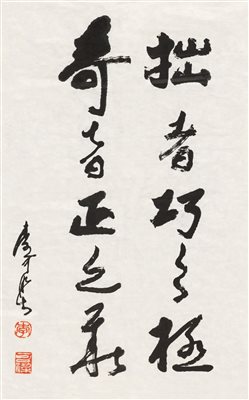 拙者巧之極
奇者正之華